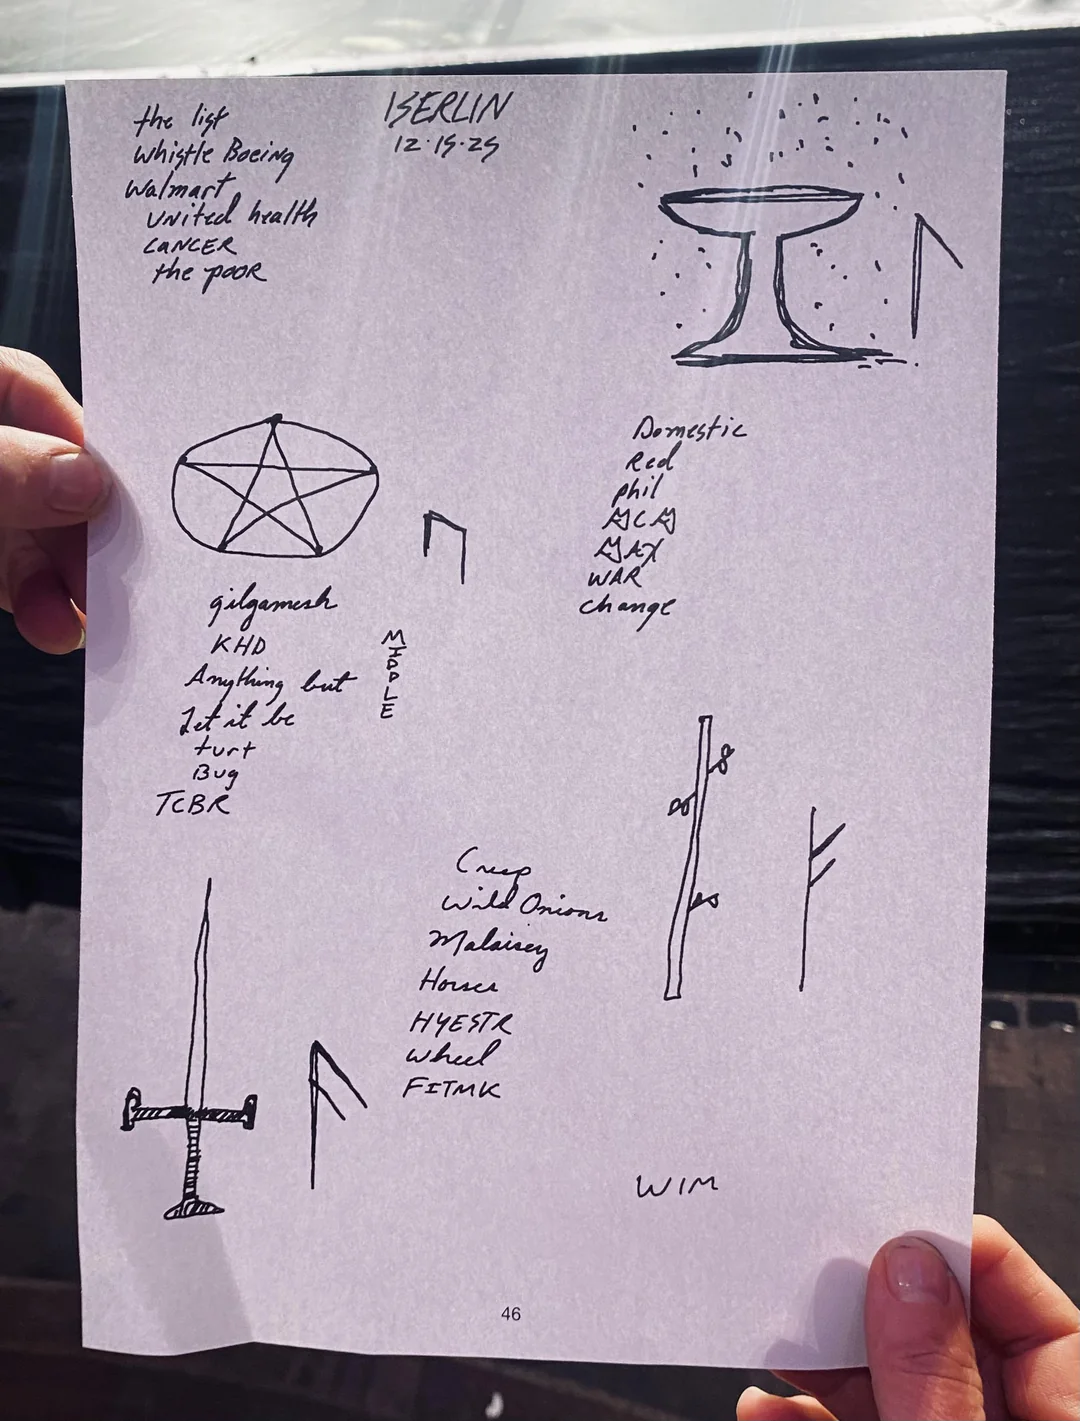 BERLIN
12·15·25
the list
Whistle Boeing
Walmart
UNITED health
CANCER
the POOR
Domestic
Red
phil
WAR
change
gilgamesh
KHD
Anything but
Let it be
turt
Bug
TCBR
MIDDLE
Creep
Wild Onions
Malaisey
Horses
HYESTR
Wheel
FITMK
WIM
46